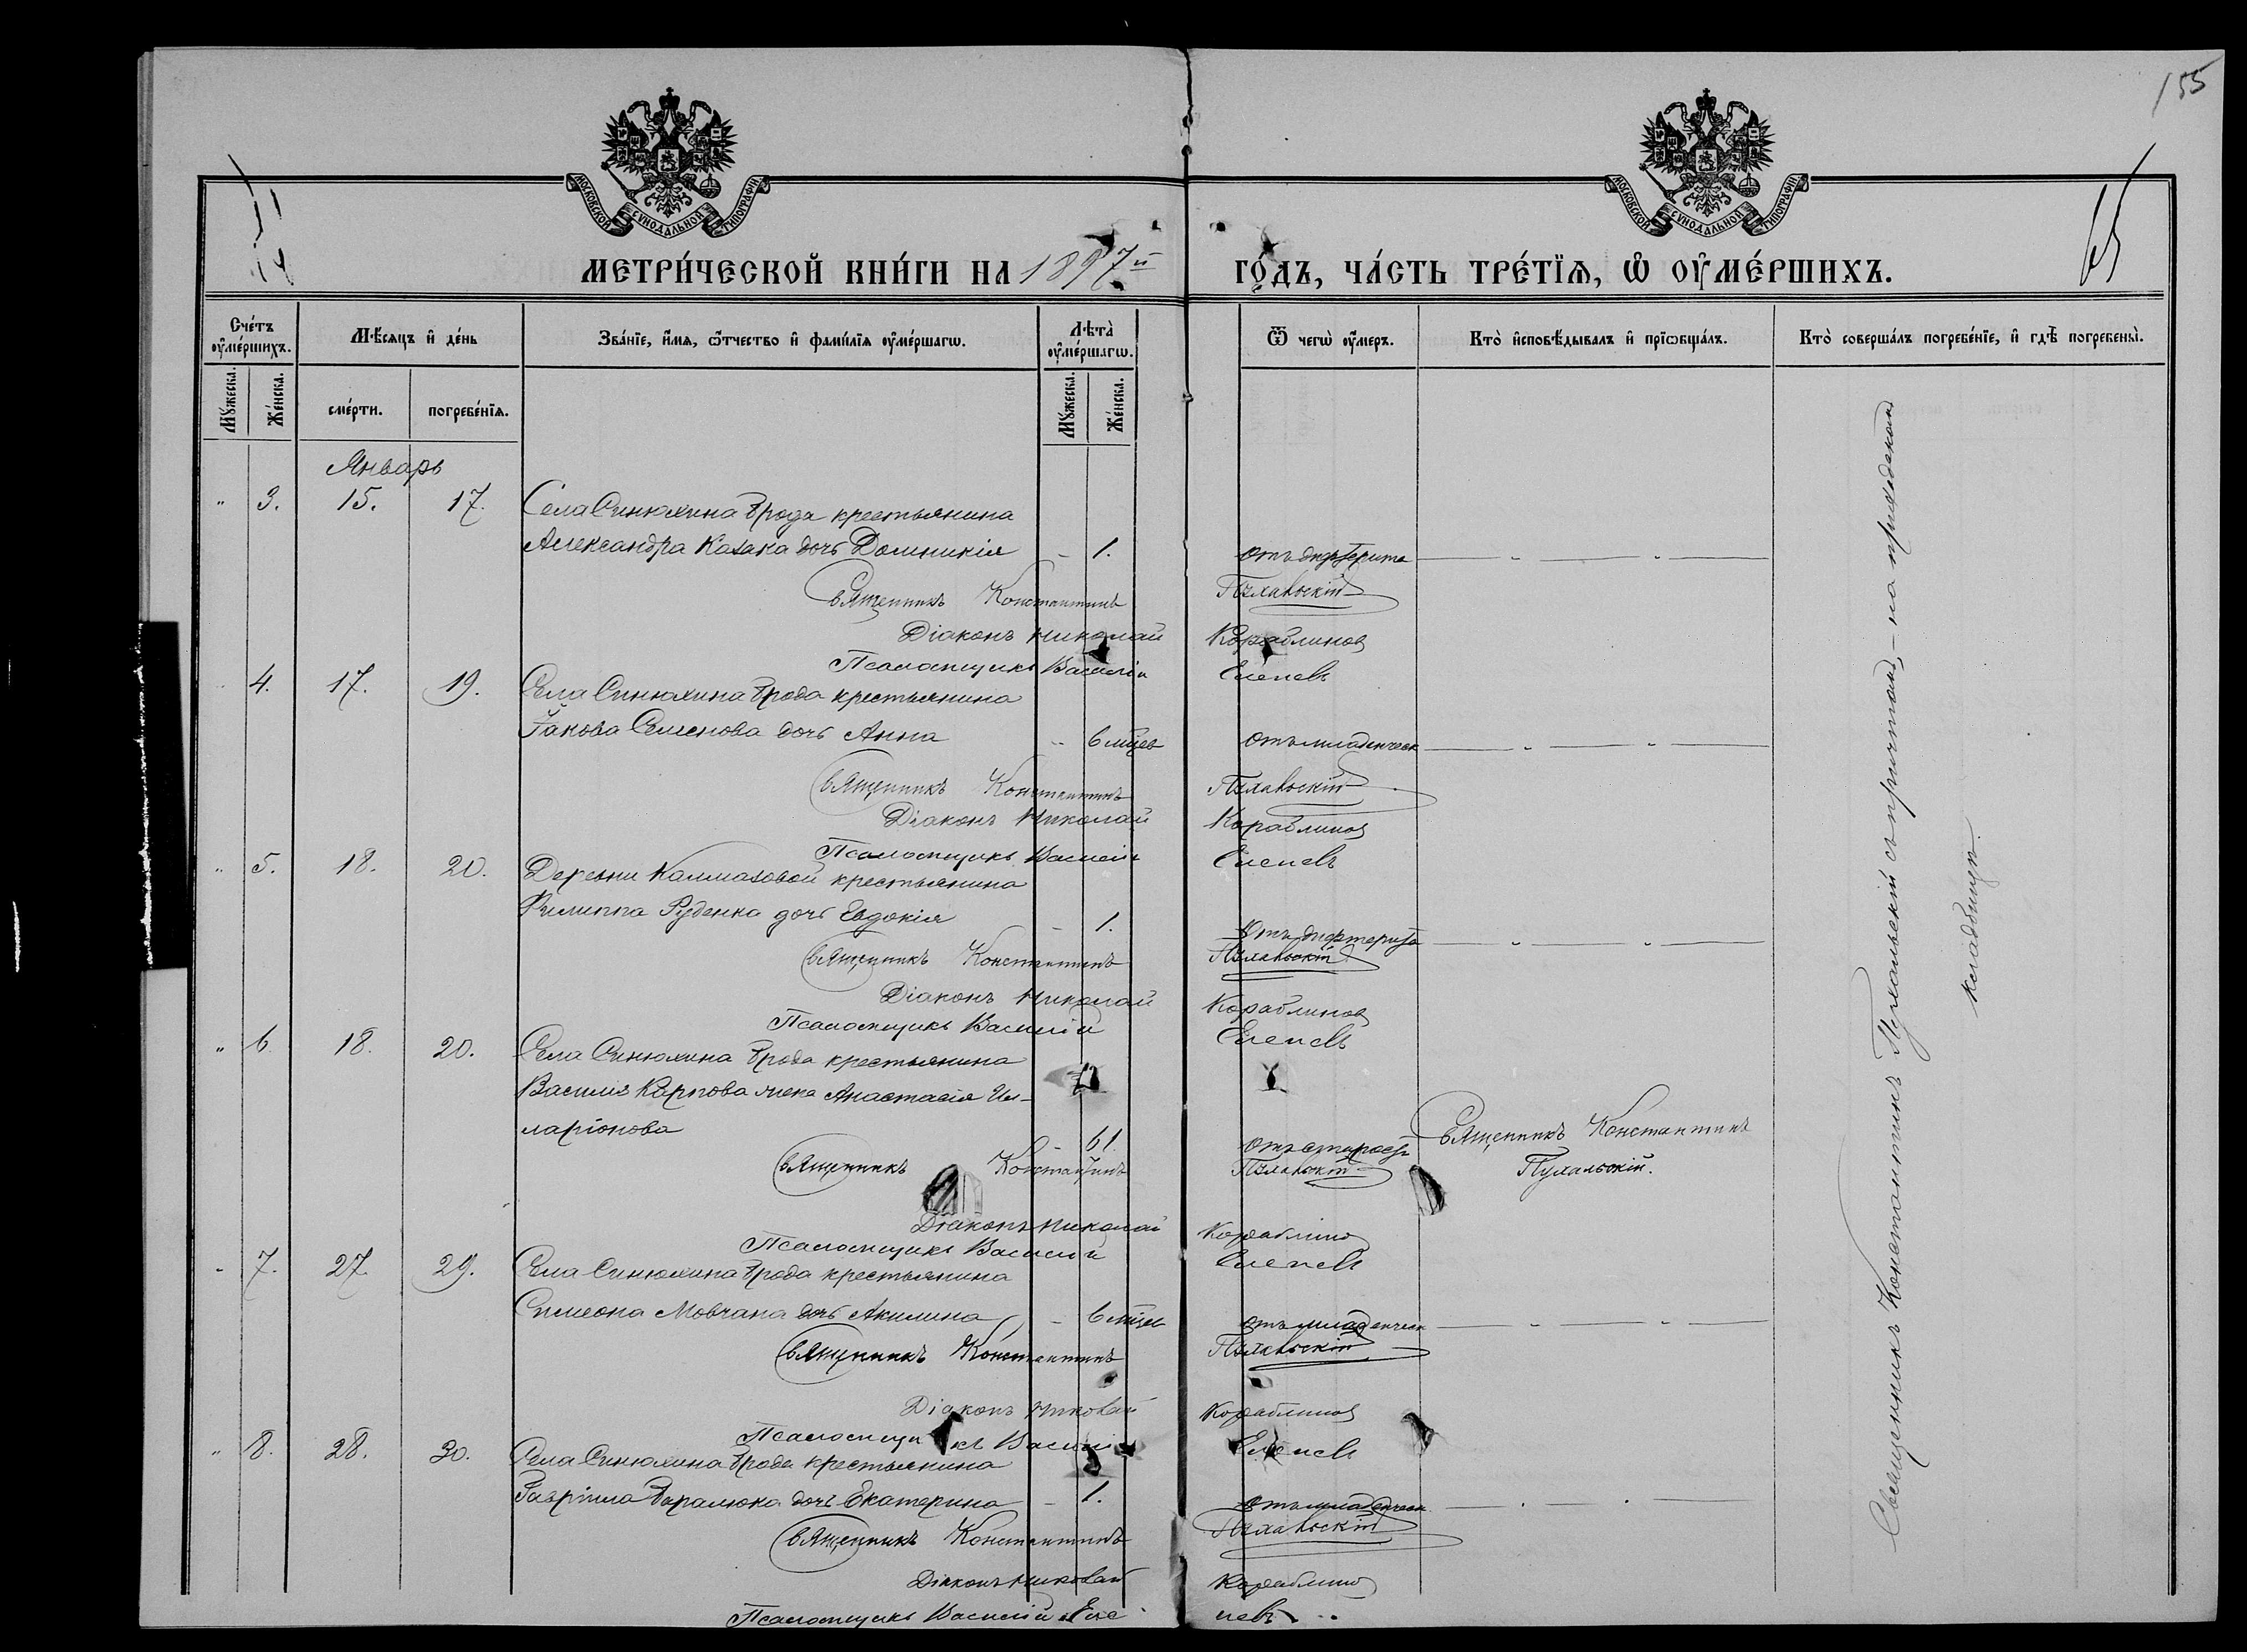 155
65
МОСКОВСКОЙ СѴНОДАЛЬНОЙ ТИПОГРАФІИ.
МОСКОВСКОЙ СѴНОДАЛЬНОЙ ТИПОГРАФІИ.
МЕТРИ́ЧЕСКОЙ КНИ́ГИ НА 1897й ГО́ДЪ, ЧА́СТЬ ТРЕ́ТЇѦ, Ѡ҆ ОУ҆МЕ́РШИХЪ.
Сче́тъ оу҆ме́ршихъ.
Мѣ́сѧцъ и҆ де́нь
Зва́нїе, и҆́мѧ, ѻ҆́тчество и҆ фами́лїѧ оу҆ме́ршагѡ.
Лѣта̀ оу҆ме́ршагѡ.
Ѿ чегѡ̀ оу҆́меръ.
Кто̀ и҆сповѣ́дывалъ и҆ прїѡбща́лъ.
Кто̀ соверша́лъ погребе́нїе, и҆ гдѣ̀ погребены̀.
Мꙋ́жеска.
Же́нска.
сме́рти.
погребе́нїѧ.
Мꙋ́жеска.
Же́нска.
Январь
" 3. 15. 17. Села Синюхина Брода крестьянина
Александра Казака дочь Домникія - 1. Отъ дифтерита
Священникъ Константинъ Пухальскій
Діаконъ Николай Кораблинов
Псаломщикъ Василій Еленевъ
" 4. 17. 19. Села Синюхина Брода крестьянина
Іакова Семенова дочь Анна " 6 мцев Отъ младенческ
Священникъ Константинъ Пухальскій
Діаконъ Николай Кораблинов
Псаломщикъ Василій Еленевъ
" 5. 18. 20. Деревни Калмазовой крестьянина
Филиппа Руденка дочь Евдокія - 1. Отъ дифтерита
Священникъ Константинъ Пухальскій
Діаконъ Николай Кораблинов
Псаломщикъ Василій Еленевъ
" 6 18. 20. Села Синюхина Брода крестьянина
Василія Карпова жена Анастасія Ил-
ларіонова - 61. Отъ старости Священникъ Константинъ
Пухальскій.
Священникъ Константинъ Пухальскій
Діаконъ Николай Кораблино
Псаломщикъ Василій Еленевъ
- 7. 27. 29. Села Синюхина Брода крестьянина
Симеона Мовчана дочь Акилина - 6 мцев отъ младенческ
Священникъ Константинъ Пухальскій
Діаконъ Николай Кораблинов
Псаломщикъ Василій Еленевъ
" 8. 28. 30. Села Синюхина Брода крестьянина
Гавріила дочь Екатерина - 1. Отъ младенческ
Священникъ Константинъ Пухальскій
Діаконъ Николай Кораблино
Псаломщикъ Василій Еленевъ
Священникъ Константинъ Пухальскій съ причтомъ, – на приходскомъ
кладбищѣ.